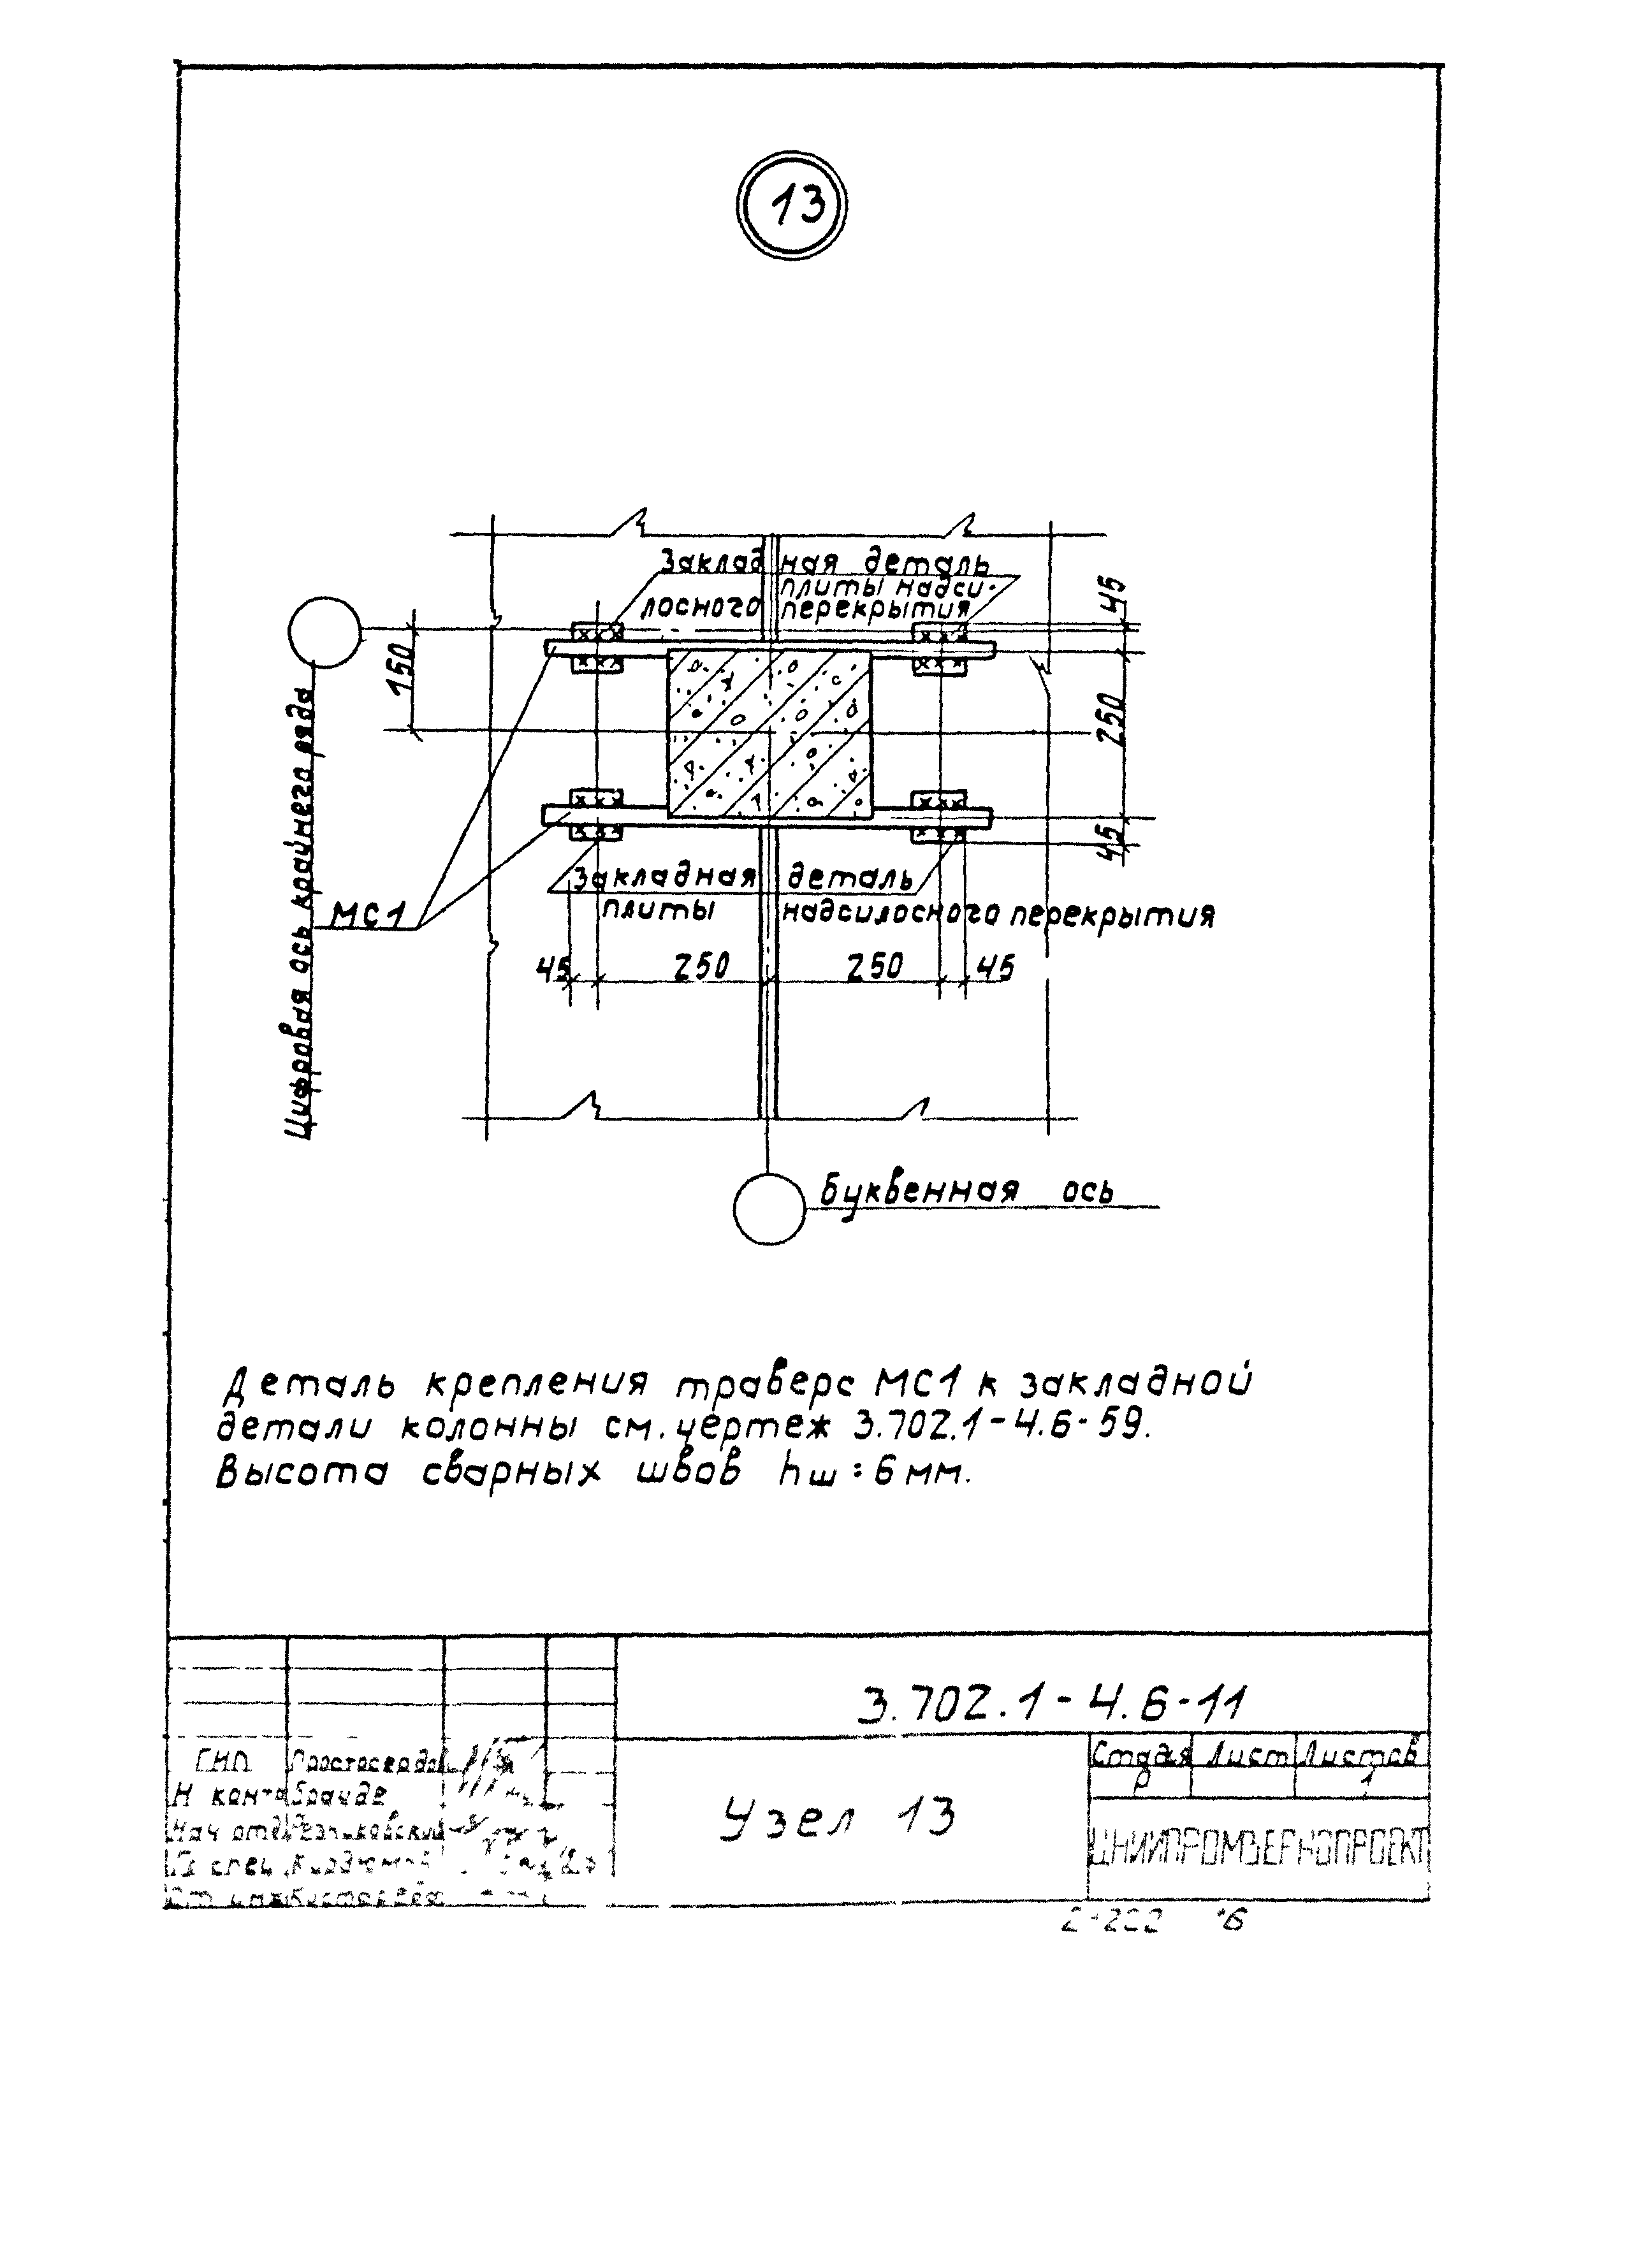 13
Заклад ная деталь
плиты надси-
лосного перекрытия
45
150
250
45
Цифровая ось крайнего ряда
МС1
Закладная деталь
плиты надсилосного перекрытия
45 250 250 45
Буквенная ось
Деталь крепления траверс МС1 к закладной
детали колонны см. чертеж 3.702.1-4.6-59.
Высота сварных швов hш=6мм.
3.702.1-4.6-11
Стадия Лист Листов
Р 1
ГИП
Н контр
Нач отд
Гл спец
Ст инж
Узел 13
ЦНИИПРОМЗЕРНОПРОЕКТ